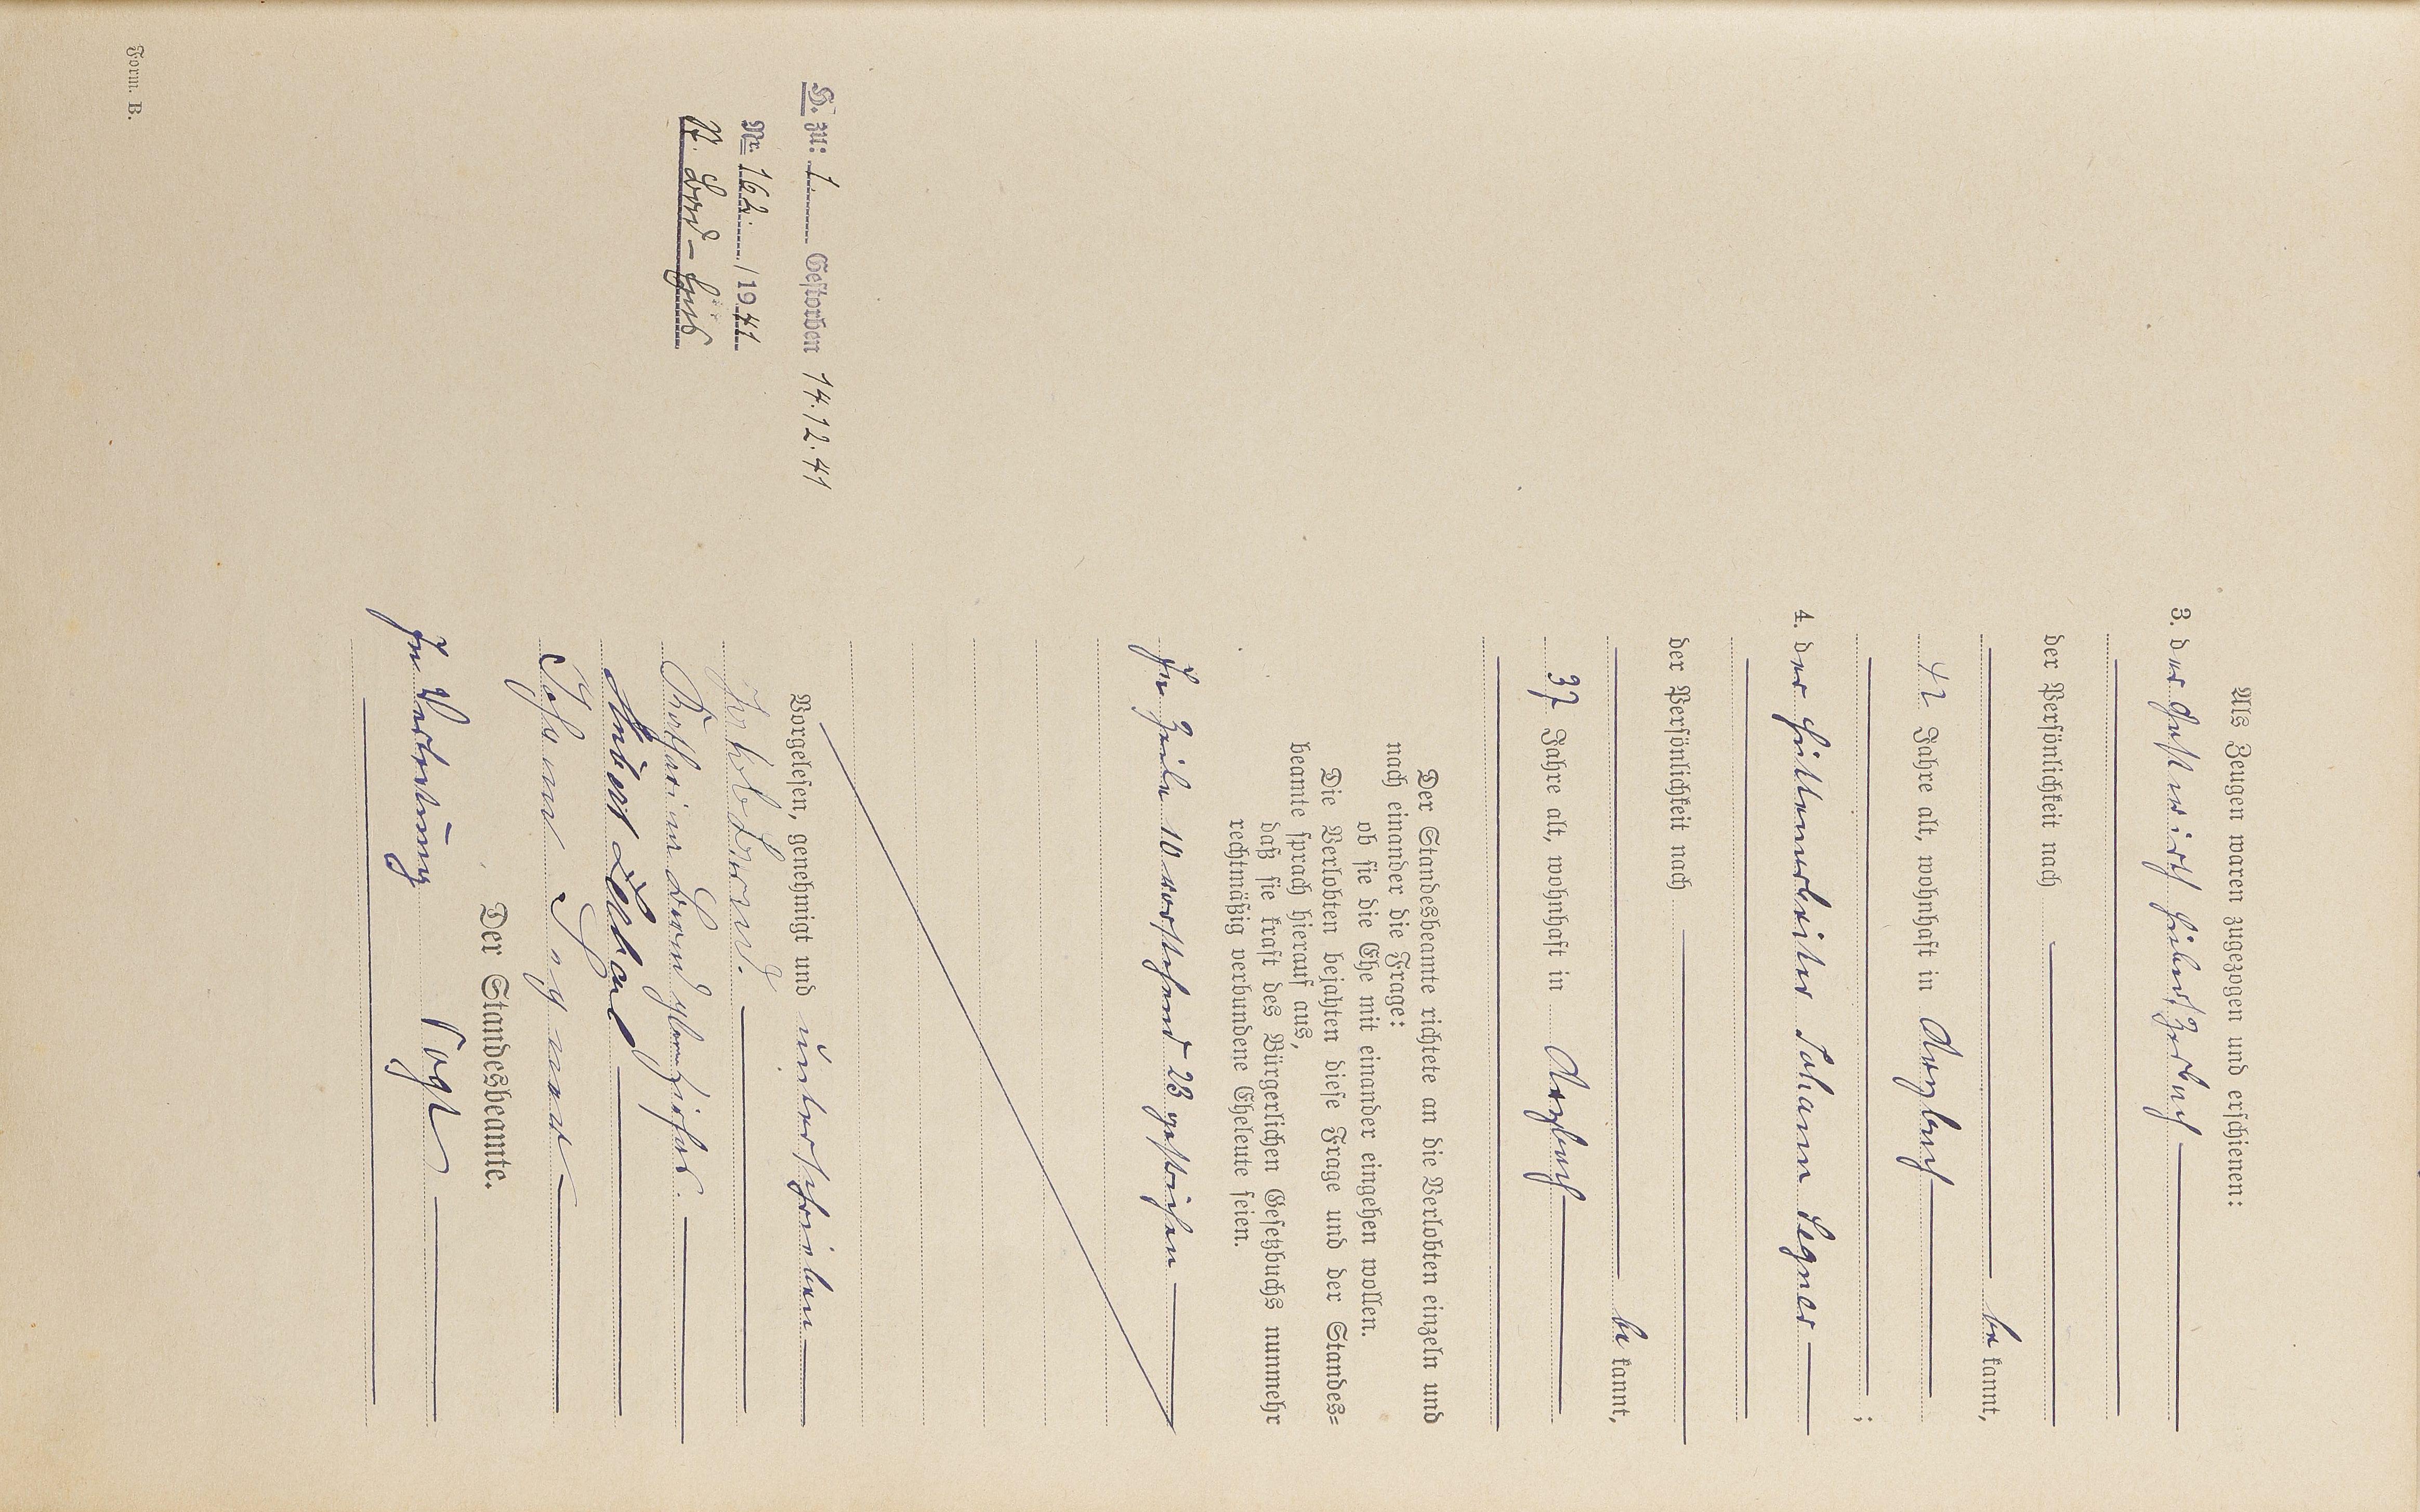 Als Zeugen waren zugezogen und erschienen:
3. der Gastwirth
der Persönlichkeit nach
be kannt,
42 Jahre alt, wohnhaft in Arzbach
;
4. der Hüttenarbeiter Johann Legner
der Persönlichkeit nach
be kannt,
37 Jahre alt, wohnhaft in Arzbach
Der Standesbeamte richtete an die Verlobten einzeln und
nach einander die Frage:
ob sie die Ehe mit einander eingehen wollen.
Die Verlobten bejahten diese Frage und der Standes=
beamte sprach hierauf aus,
daß sie kraft des Bürgerlichen Gesetzbuchs nunmehr
rechtmäßig verbundene Eheleute seien.
In Zeile 10 vorstehend 23 gestrichen
Vorgelesen, genehmigt und unterschrieben
Jakob
Johann Legner
Der Standesbeamte.
In Vertretung Vogt
H. M: 1. Gestorben 14.12.41
Nr. 162 /1941
Form. B.